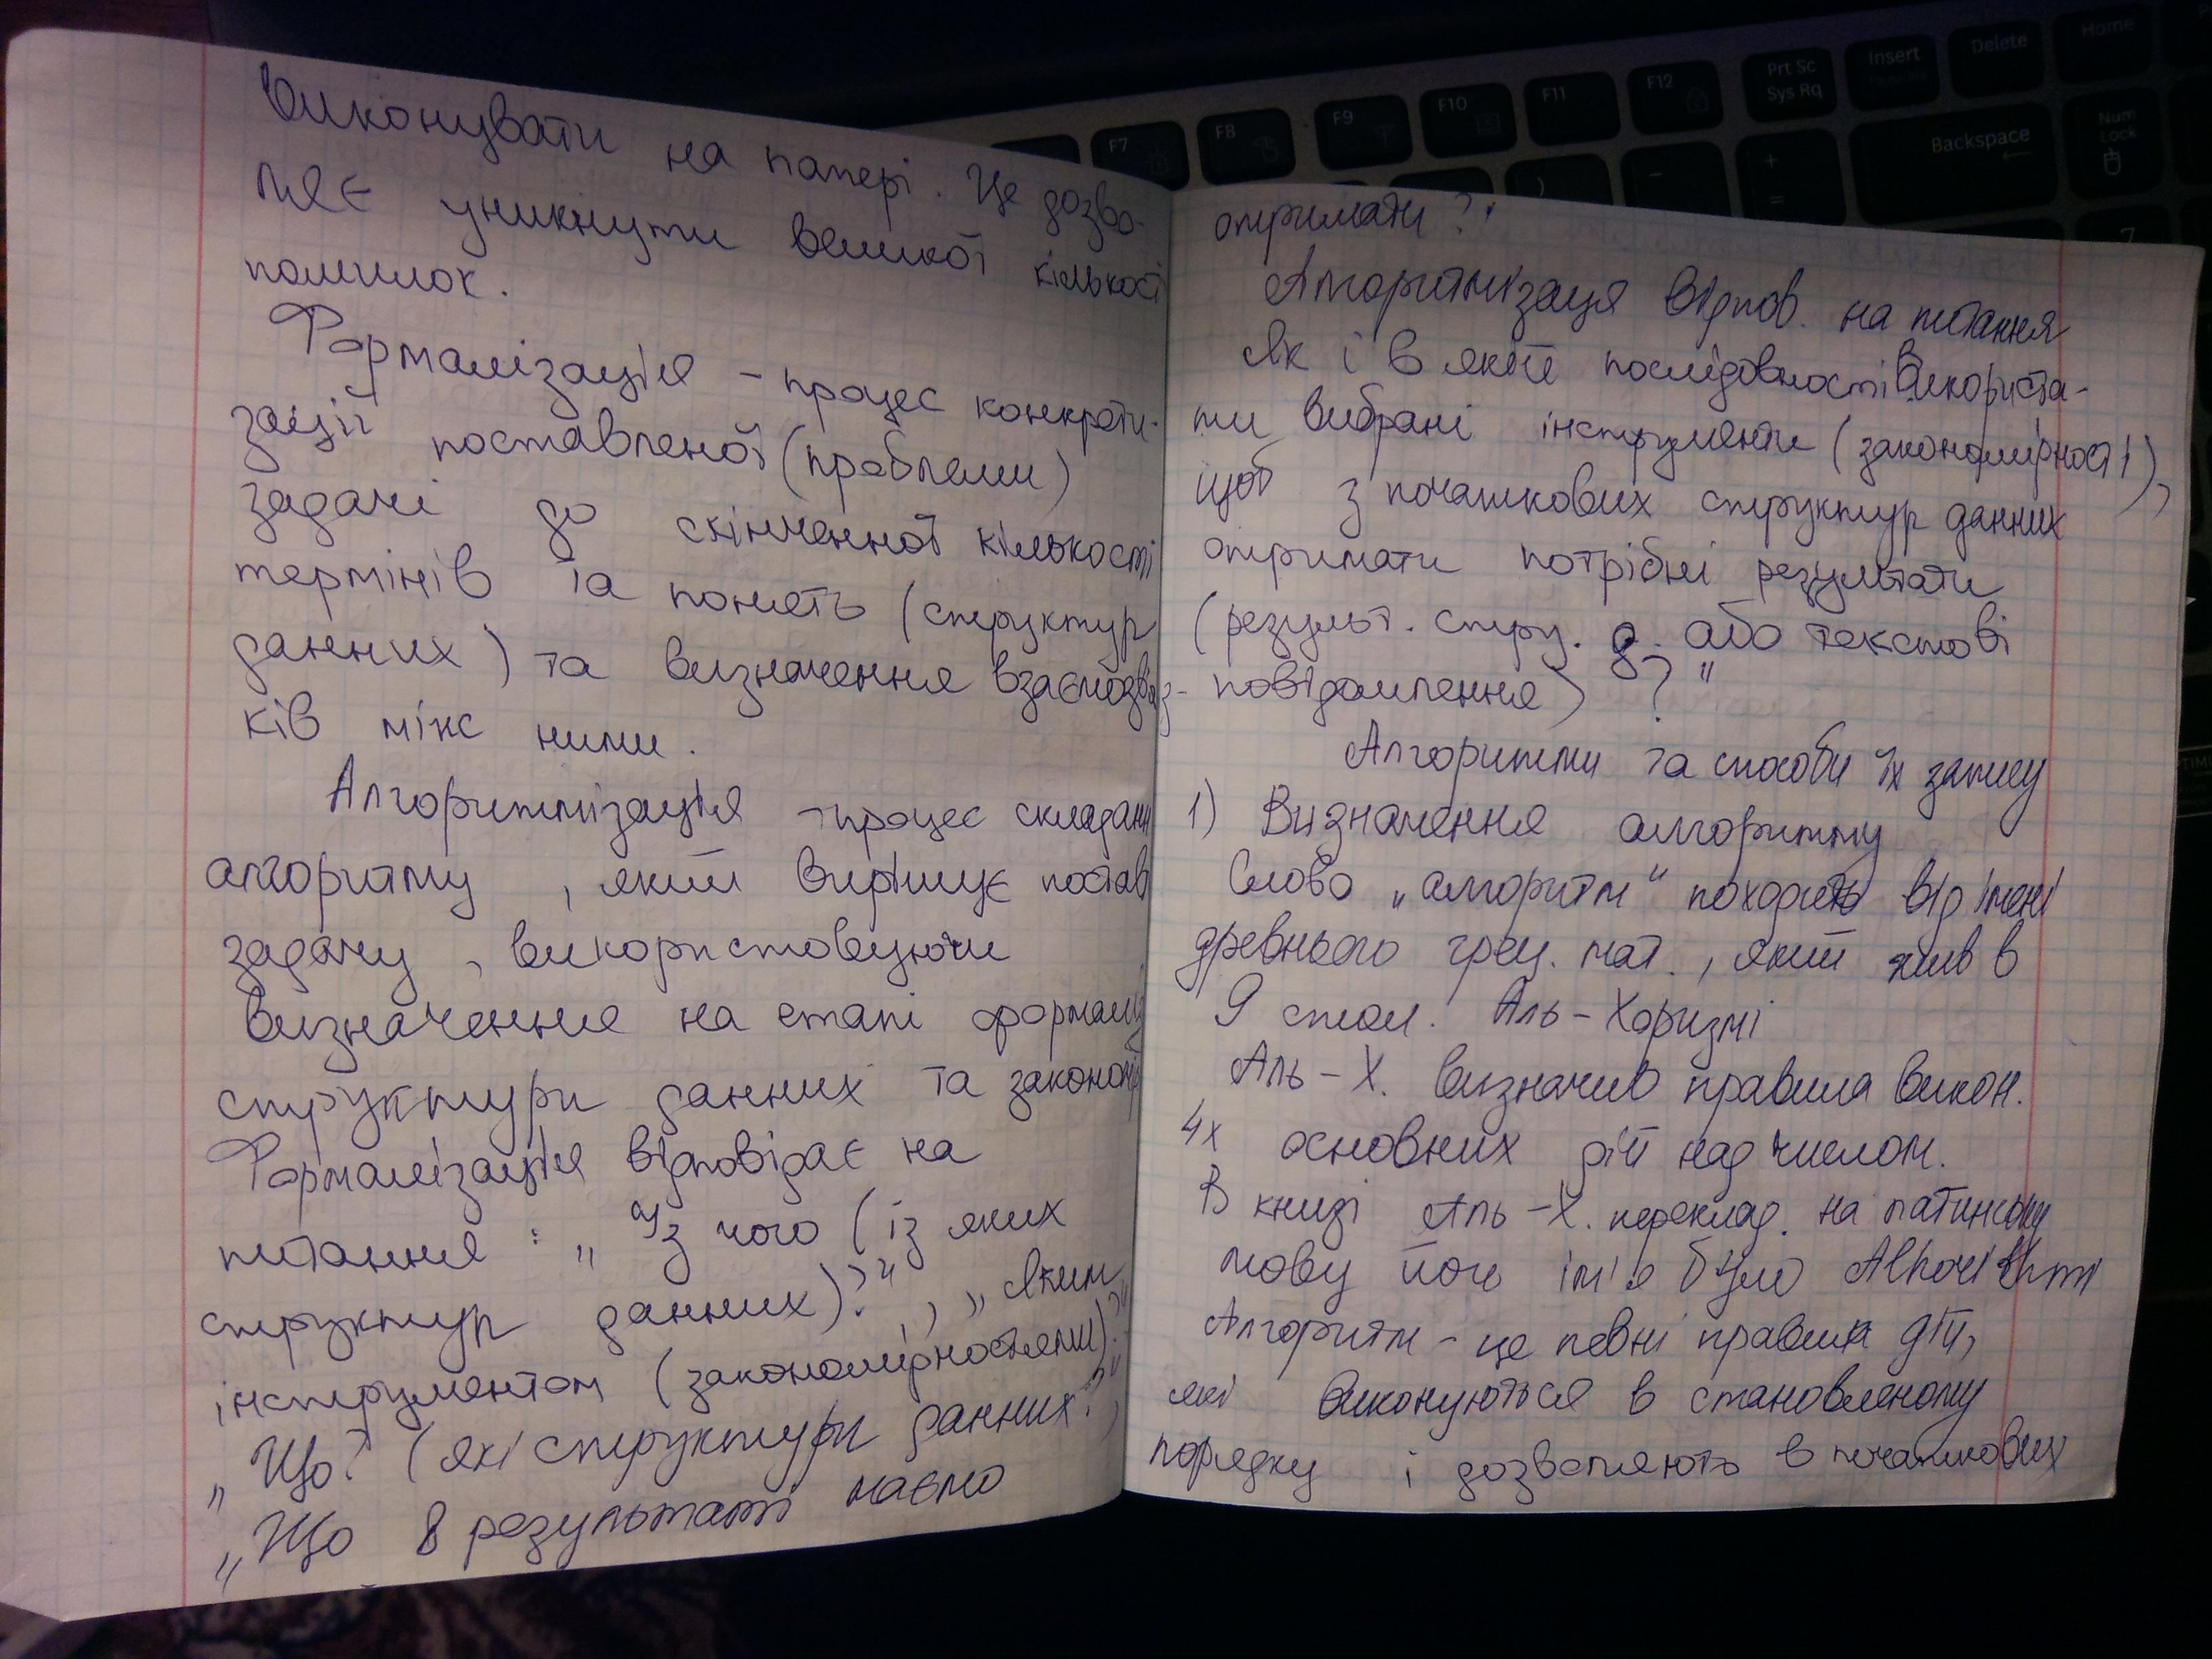 Виконувати на папері. Це дозво-
ляє уникнути великої кількості
помилок.
Формалізація - процес конкрети-
зації поставленої (проблеми)
задачі до скінченної кількості
термінів та понять (структур
данних) та визначення взаємозвяз-
ків між ними.
Алгоритмізація - процес складанн
алгоритму, який вирішує постав
задачу, використовуючи
визначенние на етапі формаліз
структури данних та закономір
Формалізація відповідає на
питання : „Із чого (із яких
структур данних)?", „Яким
інструментом (закономірностями)?"
„Що? (які структури данних?",
„Що в результаті маємо
отримати?"
Алгоритмізація відпов. на питання
Як і в якій послідовності використа-
ти вибрані інструменти (закономірності),
щоб з початкових структур данних
отримати потрібні результати
(результ. стру. д. або текстові
повідомлення) ?"
Алгоритми та способи їх запису
1) Визначення алгоритму
Слово „алгоритм" походить від імені
древнього грец. мат., який жив в
9 стол. Аль-Хоризмі
Аль-Х. визначив правила викон.
4х основних дій над числом.
В книзі Аль-Х. переклад. на латинську
мову його ім'я було Alhorithmi
Алгоритм - це певні правила дій,
які виконуються в становленому
порядку і дозволяють в початкових
F7 F8 F9 F10 F11 F12 Prt Sc Sys Rq Insert Delete Home
) - + = Backspace Num Lock
7